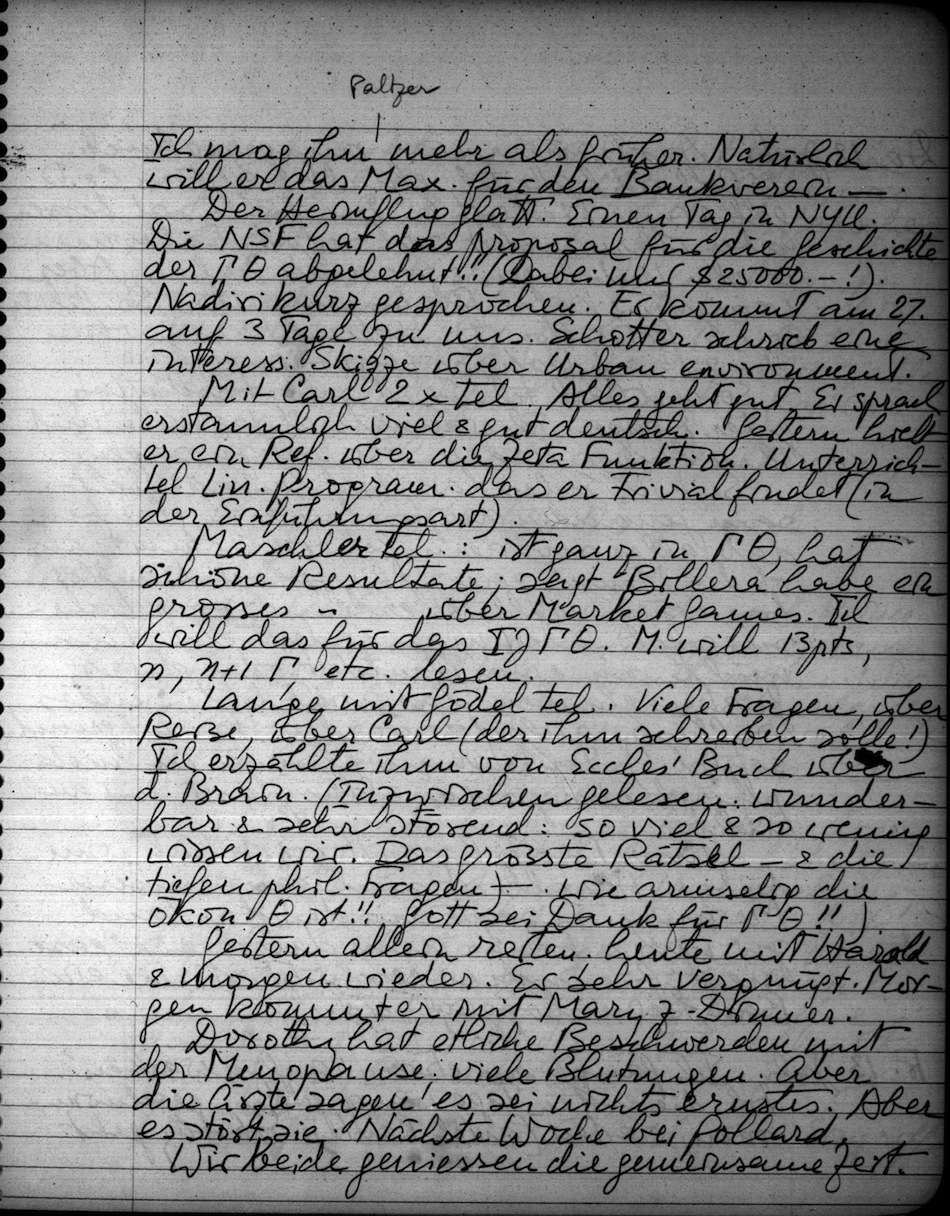 Paltzer
Ich mag ihn mehr als früher. Natürlich
will er das Max. für den Bankverein —.
Der Herüflug glatt. Einen Tag in NYU.
Die NSF hat das proposal für die Geschichte
der ΓΘ abgelehnt!! (Dabei nur $25000.-!).
Nadiri kurz gesprochen. Er kommt am 27.
auf 3 Tage zu uns. Schotter schrieb eine
interess. Skizze über Urban environment.
Mit Carl 2x tel. Alles geht gut. Er sprach
erstaunlich viel & gut deutsch. Gestern hielt
er ein Ref. über die Zeta Funktion. Unterrich-
tet Lin. Program. das er trivial findet (in
der Einführungsart).
Maschler tel.: ist ganz in ΓΘ, hat
schöne Resultate; sagt Billera habe ein
grosses " über Market Games. Ich
will das für das IJΓΘ. M. will 13pts,
n, n+1 Γ, etc. lesen.
Lange mit Gödel tel. Viele Fragen, über
Reise, über Carl (der ihm schreiben solle!)
Ich erzählte ihm von Eccles' Buch über
d. Brain. (Inzwischen gelesen: wunder-
bar & sehr störend: so viel & so wenig
wissen wir. Das grösste Rätsel – & die
tiefen phil. Fragen) – wie armselig die
ökon. Θ ist!! Gott sei Dank für ΓΘ!!)
Gestern allein reiten. heute mit Harold
& morgen wieder. Er sehr vergnügt. Mor-
gen kommt er mit Mary z. Dinner.
Dorothy hat etliche Beschwerden mit
der Menopause; viele Blutungen. Aber
die Ärzte sagen es sei nichts ernstes. Aber
es stört sie. Nächste Woche bei Pollard.
Wir beide geniessen die gemeinsame Zeit.